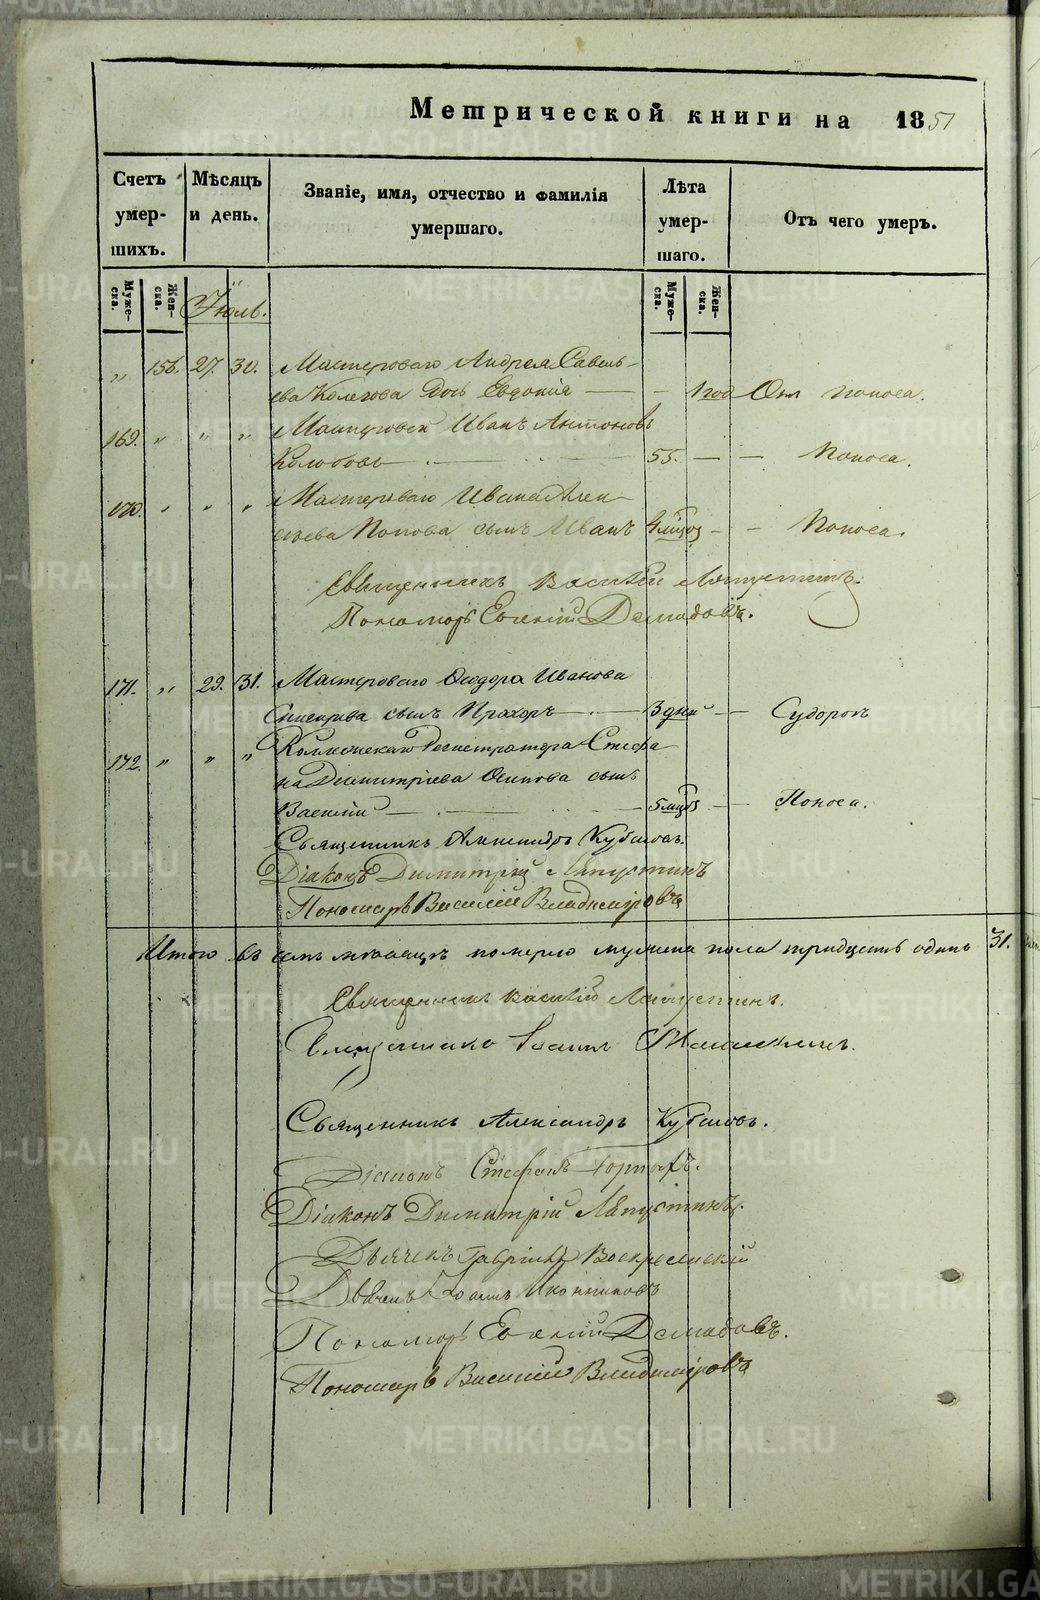 Метрической книги на 1851
Счетъ умершихъ.
Мѣсяцъ и день.
Званіе, имя, отчество и фамилія умершаго.
Лѣта умершаго.
Отъ чего умеръ.
Мужеска. Женска. Мужеска. Женска.
Іюль.
„ 156. 27. 30. Мастероваго Андрея Савель-
ева дочь Евдокія — — 1 год Отъ поноса.
169. „ „ „ Мастеровой Иванъ Антоновъ
Колобовъ — 55. — — Поноса.
170. „ „ „ Мастероваго Ивана Алек-
сѣева Попова сынъ Иванъ 4 мѣсяц — — Поноса.
Священникъ Василій Ляпустинъ.
Пономарь Евгеній Демидовъ.
171. „ 29. 31. Мастероваго Ѳеодора Иванова
сынъ Прохоръ — 3 дней — Судорокъ
172. „ „ „ Коллежскаго Регистратора Стефа-
на Димитріева Осипова сынъ
Василій — — 5 мѣсяц — Поноса.
Священникъ Александръ
Діаконъ Димитрій Ляпустинъ
Пономарь Василій Владиміровъ
Итого въ семъ мѣсяцѣ померло мужеска пола тридцать одинъ 31.
Священникъ Василій Ляпустинъ.
Священникъ Іоаннъ
Священникъ Александръ
Діаконъ Стефанъ
Діаконъ Димитрій Ляпустинъ.
Дьячекъ Гавріилъ Воскресенскій
Дьячекъ Іоаннъ Иконниковъ
Пономарь Евгеній Демидовъ.
Пономарь Василій Владиміровъ
METRIKI.GASO-URAL.RU